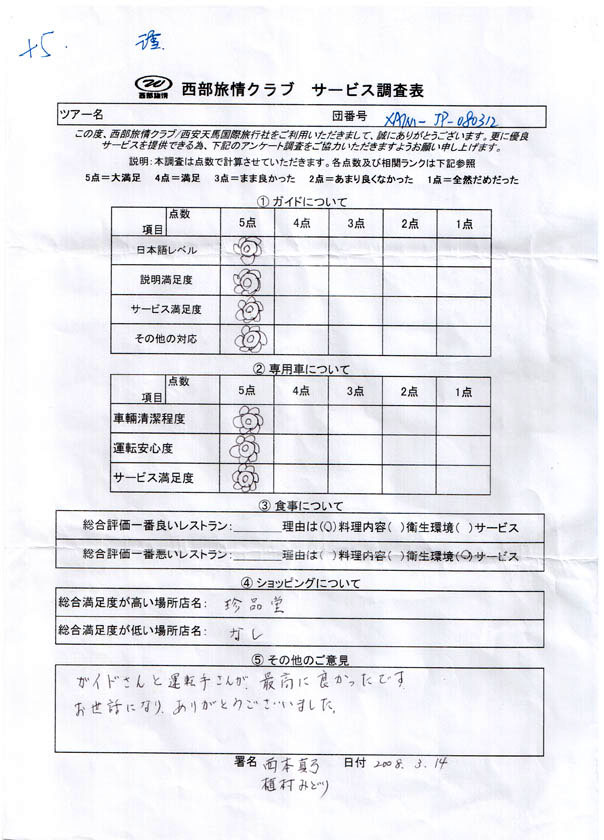 +5.
西部旅情
西部旅情クラブ サービス調査表
ツアー名 団番号 XATM-JP-080312
この度、西部旅情クラブ/西安天馬国際旅行社をご利用いただきまして、誠にありがとうございます。更に優良
サービスを提供できる為、下記のアンケート調査をご協力いただきますようお願い申し上げます。
説明:本調査は点数で計算させていただきます。各点数及び相関ランクは下記参照
5点=大満足 4点=満足 3点=まま良かった 2点=あまり良くなかった 1点=全然だめだった
① ガイドについて
点数 項目 5点 4点 3点 2点 1点
日本語レベル
説明満足度
サービス満足度
その他の対応
② 専用車について
点数 項目 5点 4点 3点 2点 1点
車輛清潔程度
運転安心度
サービス満足度
③ 食事について
総合評価一番良いレストラン:______ 理由は(○)料理内容( )衛生環境( )サービス
総合評価一番悪いレストラン:______ 理由は( )料理内容( )衛生環境(○)サービス
④ ショッピングについて
総合満足度が高い場所店名: 珍品堂
総合満足度が低い場所店名: なし
⑤ その他のご意見
ガイドさんと運転手さんが、最高に良かったです。
お世話になり、ありがとうございました。
署名 西本真弓 日付 2008.3.14
植村みどり